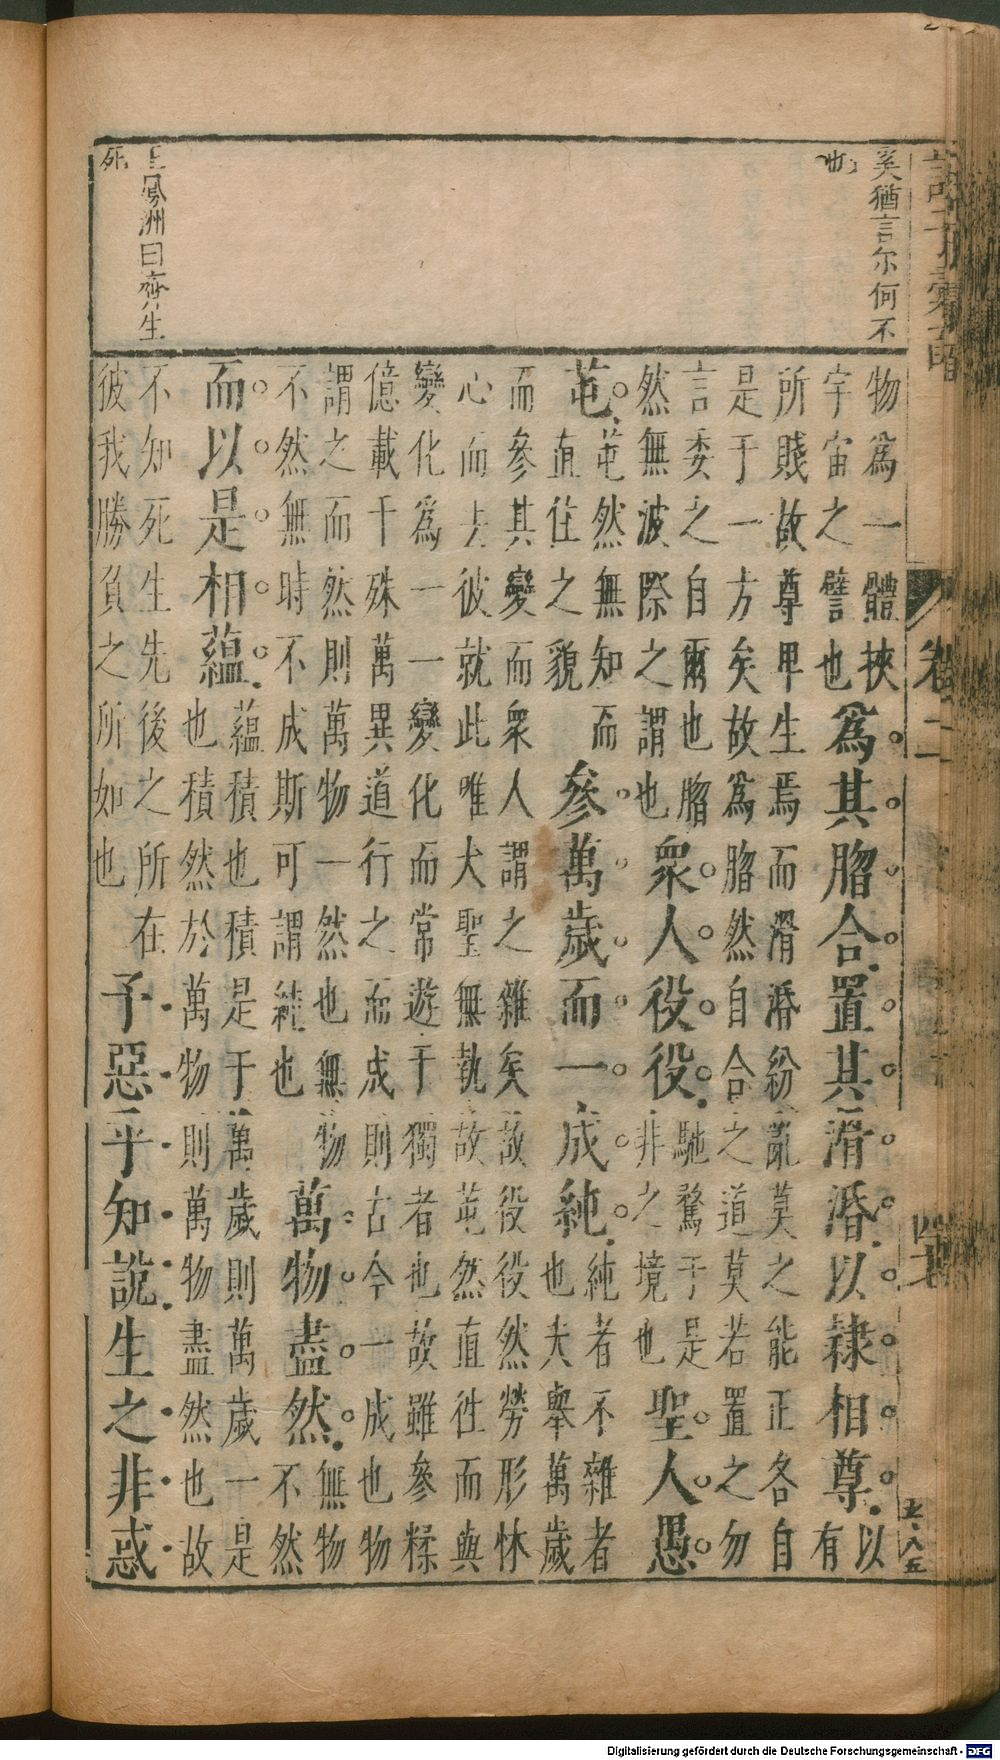 卷二
奚猶言尔何不
也
王鳳洲曰齊生
死
物為一體挾
宇宙之譬也
為其脗合置其滑涽以隸相尊
以
有
所賤故尊卑生焉而滑涽紛亂莫之能正各自
是于一方矣故為脗然自合之道莫若置之勿
言委之自爾也脗
然無波際之謂也
衆人役役
馳騖于是
非之境也
聖人愚
芚
芚然無知而
直往之貌
參萬歲而一成純
純者不雜者
也夫舉萬歲
而參其變而衆人謂之雜矣故役役然勞形怵
心而去彼就此唯大聖無執故芚然直往而與
變化為一一變化而常遊于獨者也故雖參糅
億載千殊萬異道行之而成則古今一成也物
謂之而然則萬物一然也無物
不然無時不成斯可謂純也
萬物盡然
無物
不然
而以是相蘊
蘊積也積是于萬歲則萬歲一是
也積然於萬物則萬物盡然也故
不知死生先後之所在
彼我勝負之所如也
予惡乎知說生之非惑
Digitalisierung gefördert durch die Deutsche Forschungsgemeinschaft - DFG